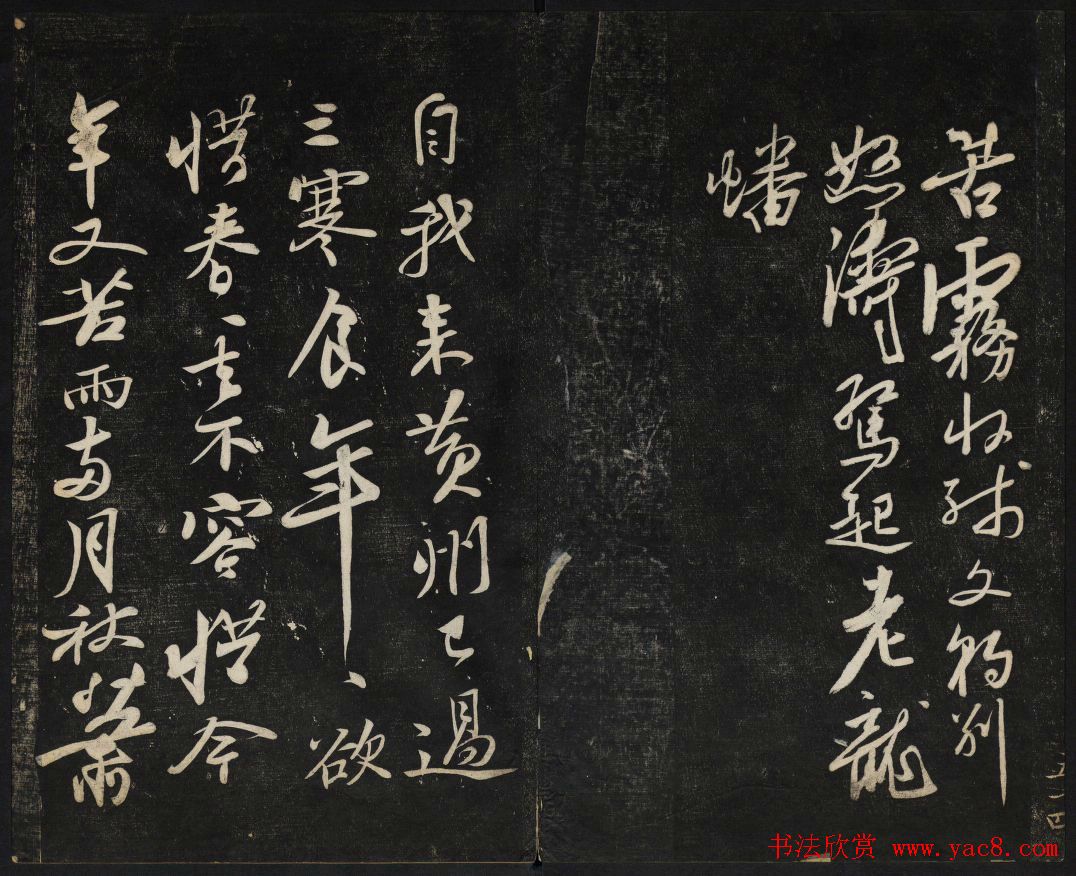 苦霧收殘文豹別
怒濤驚起老龍
蟠
自我来黄州已過
三寒食年々欲
惜春々去不容惜今
年又苦雨兩月秋蕭
书法欣赏 www.yac8.com